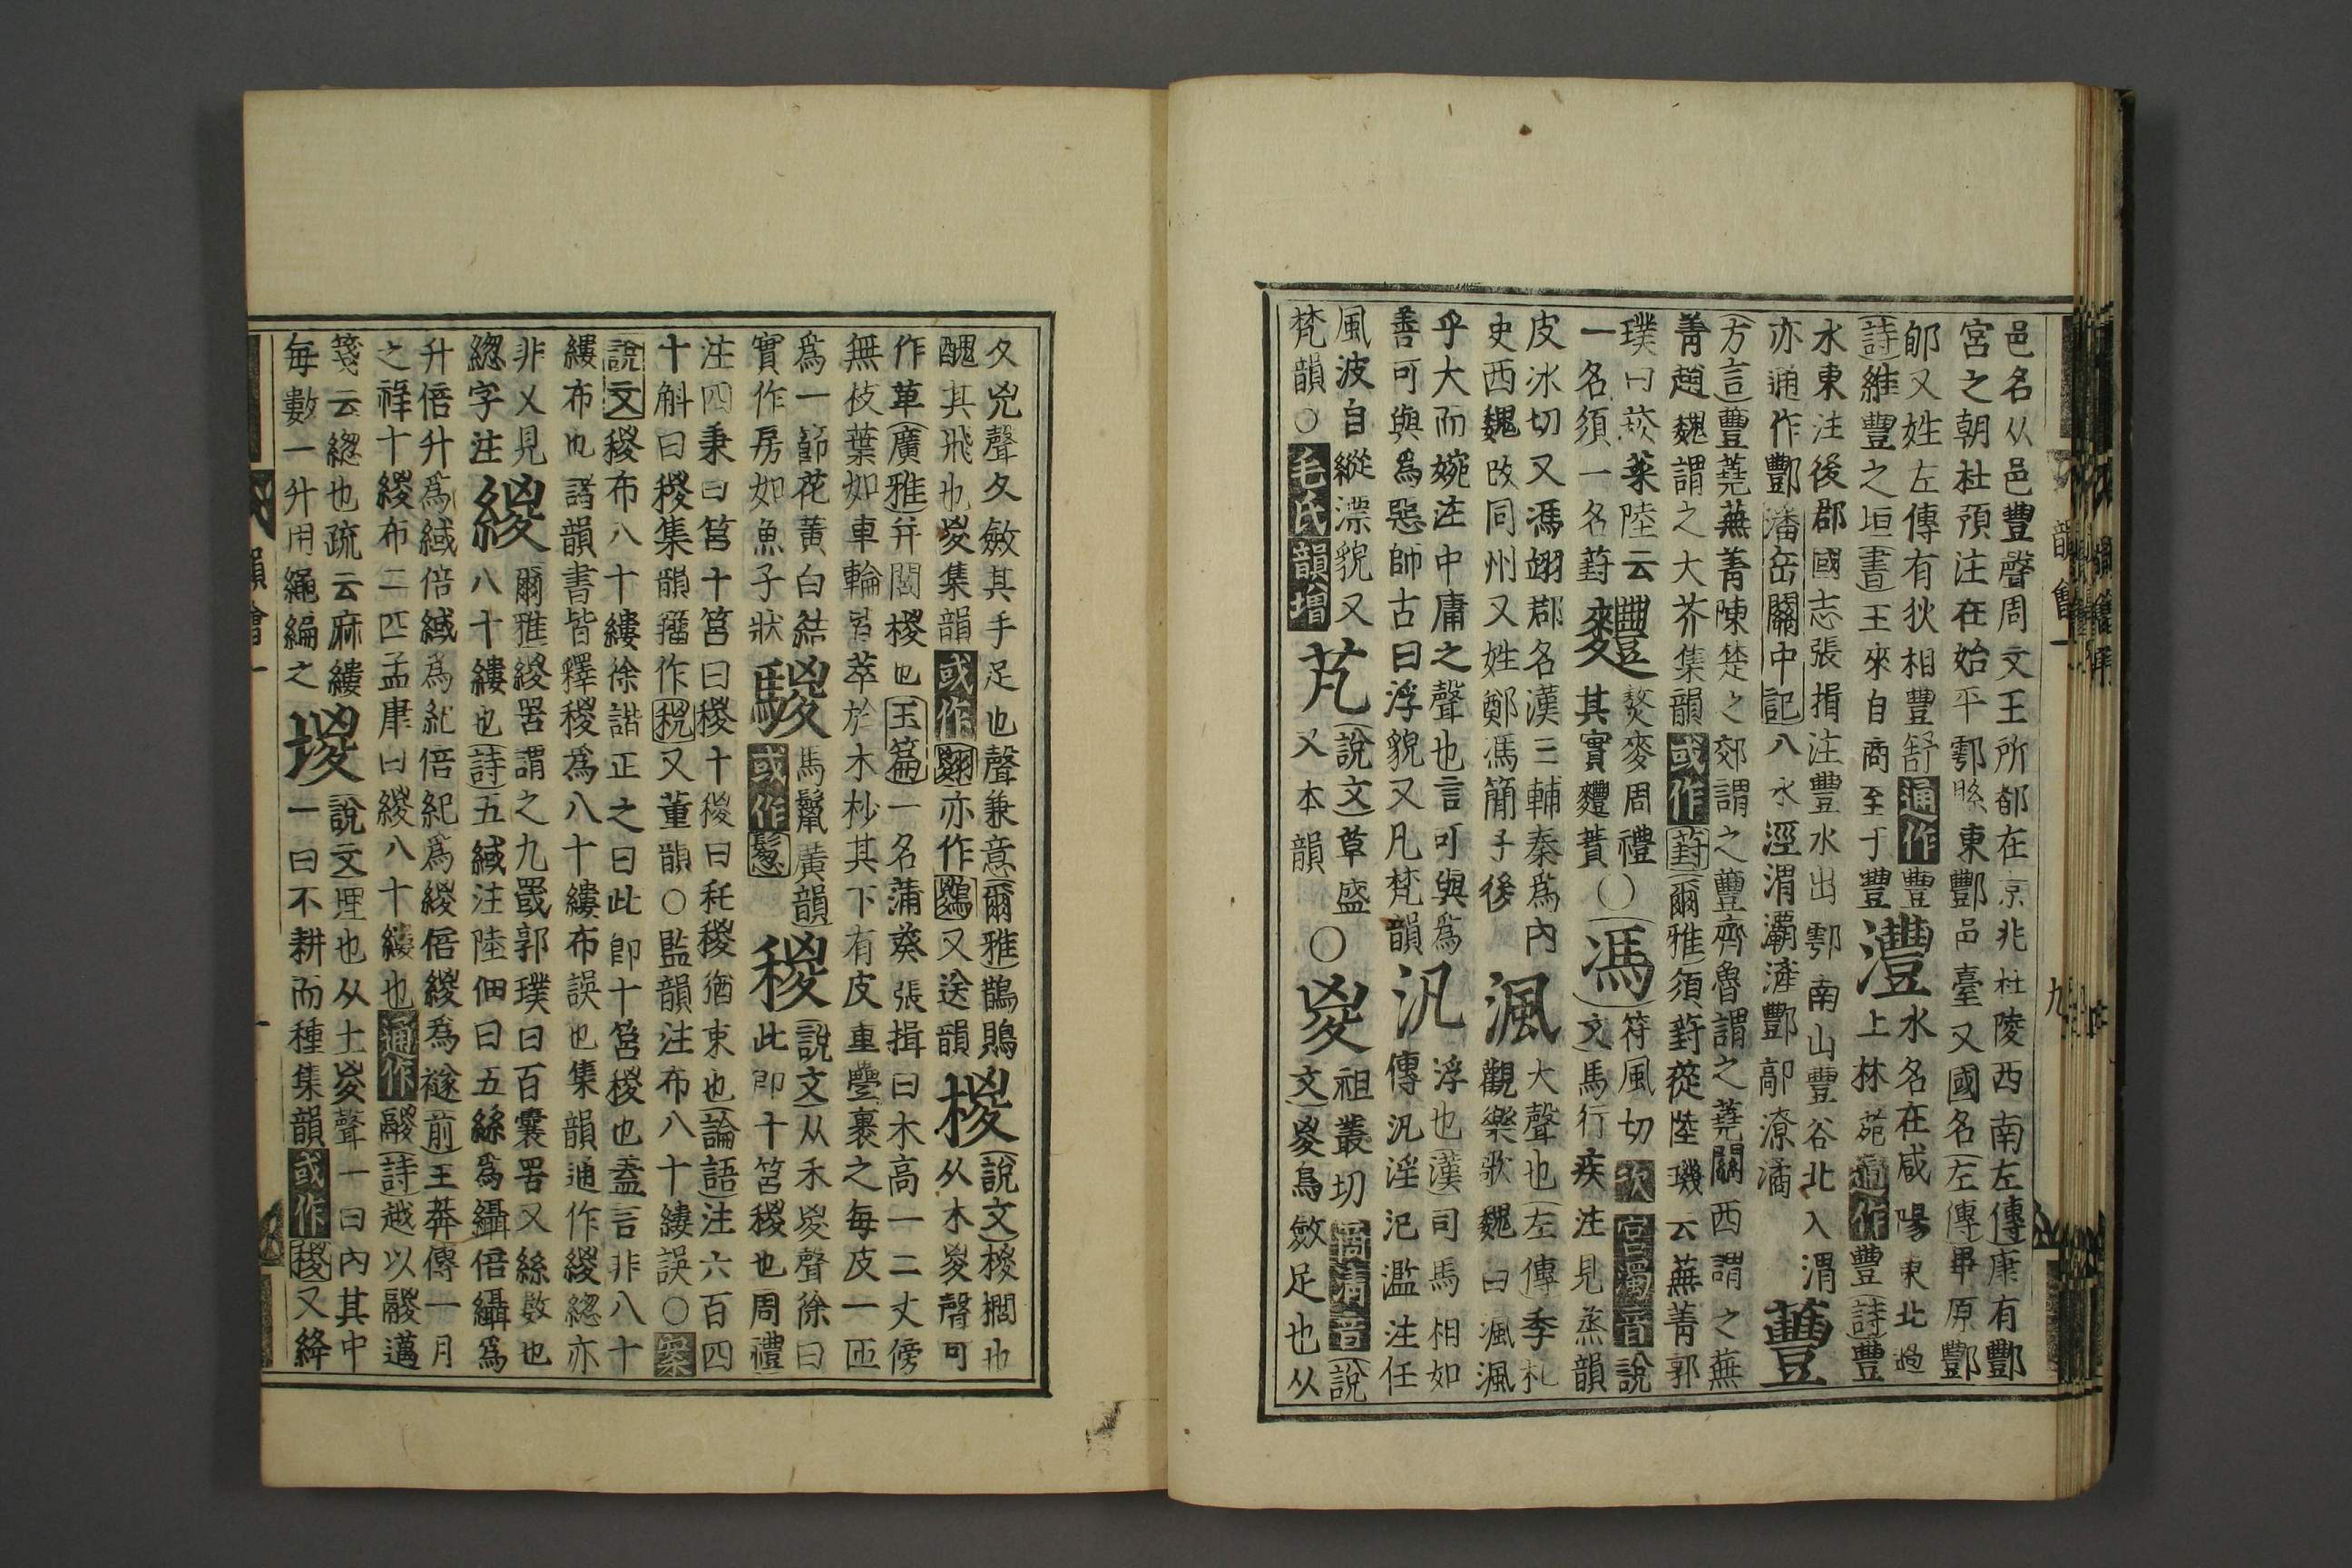 邑名从邑豐聲周文王所都在京兆杜陵西南左傳康有酆
宮之朝杜預注在始平鄠縣東酆邑臺又國名左傳畢原酆
郇又姓左傳有狄相豐舒通作豐
灃
水名在咸陽東北過
詩維豐之垣書王來自商至于豐
上林苑通作豐詩豐
水東注後郡國志張揖注豐水出鄠南山豐谷北入渭
亦通作酆潘岳關中記八水涇渭灞滻酆鄗潦潏
蘴
方言蘴蕘蕪菁陳楚之郊謂之蘴齊魯謂之蕘關西謂之蕪
菁趙魏謂之大芥集韻或作葑爾雅須葑蓯陸璣云蕪菁郭
璞曰菘菜陸云
一名須一名葑
麷
熬麥周禮
其實麷蕡○
馮
符風切次宮濁音說
文馬行疾注見蒸韻
皮冰切又馮翊郡名漢三輔秦爲內
史西魏改同州又姓鄭馮簡子後
渢
大聲也左傳季札
觀樂歌魏曰渢渢
乎大而婉注中庸之聲也言可與爲
善可與爲惡師古曰浮貌又凡梵韻
汎
浮也漢司馬相如
傳汎淫氾濫注任
風波自縱漂貌又
梵韻○毛氏韻增
芃
說文草盛
又本韻○
㚇
祖叢切商清音說
文㚇鳥斂足也从
夂兇聲夂斂其手足也聲兼意爾雅鵲鵙
醜其飛也㚇集韻或作翪亦作鬷又送韻
椶
說文椶櫚也
从木㚇聲可
作萆廣雅幷閭椶也玉篇一名蒲葵張揖曰木高一二丈傍
無枝葉如車輪皆萃於木杪其下有皮重疊裹之每皮一匝
爲一節花黃白結
實作房如魚子狀
騣
馬鬣廣韻
或作鬉
稯
說文从禾㚇聲徐曰
此即十筥稯也周禮
注四秉曰筥十筥曰稯十稯曰秅稯猶束也論語注六百四
十斛曰稯集韻籀作䅜又董韻○監韻注布八十縷誤○案
說文稯布八十縷徐諧正之曰此卽十筥稯也蓋言非八十
縷布也諸韻書皆釋稯爲八十縷布誤也集韻通作緵緫亦
非乂見
緫字注
緵
爾雅緵罟謂之九罭郭璞曰百囊罟又絲數也
八十縷也詩五緎注陸佃曰五絲爲䌰倍䌰爲
升倍升爲緎倍緎爲紀倍紀爲緵倍緵爲襚前王莽傳一月
之祿十緵布二匹孟康曰緵八十縷也通作鬷詩越以鬷邁
箋云緫也疏云麻縷
每數一升用繩編之
堫
說文埋也从土㚇聲一曰內其中
一曰不耕而種集韻或作稯又絳
韻會一
九